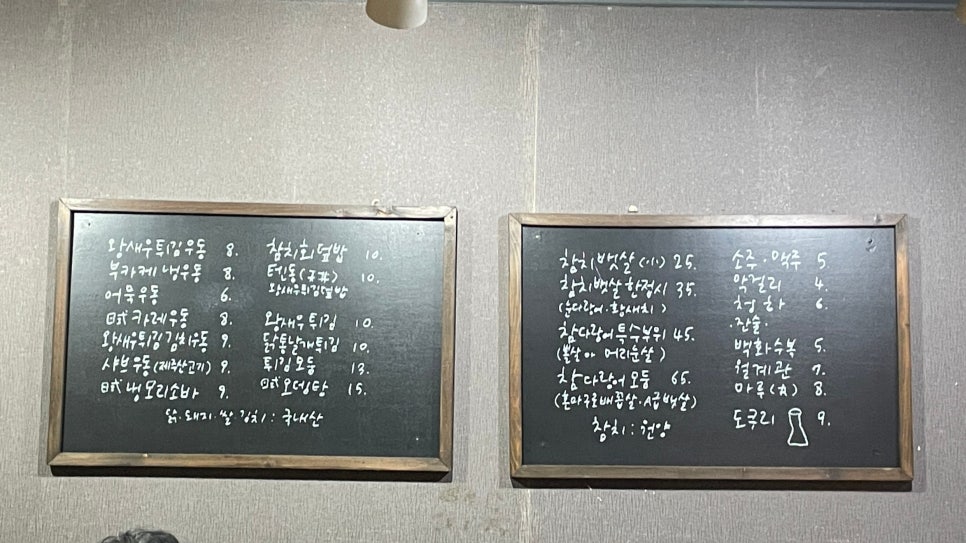 왕새우튀김우동 8.
붓카케 냉우동 8.
어묵우동 6.
日式 카레우동 8.
왕새우튀김김치우동 9.
샤브우동 (제주산고기) 9.
日式 냉모리소바 9.
참치회덮밥 10.
텐동 (天丼) 10.
왕새우튀김덮밥
왕새우튀김 10.
닭통날개튀김 10.
튀김모둠 13.
日式 오뎅탕 15.
닭. 돼지. 쌀 김치 : 국내산
참치뱃살 (小) 25.
참치뱃살한접시 35.
(눈다랑어·황새치)
참다랑어특수부위 45
(뽈살 머리윗살)
참다랑어모둠 65.
(혼마구로배꼽살·A급뱃살)
참치 : 원양
소주·맥주 5.
막걸리 4.
청하 6.
잔술
백화수복 5.
월계관 7.
마루 8.
도쿠리 9.